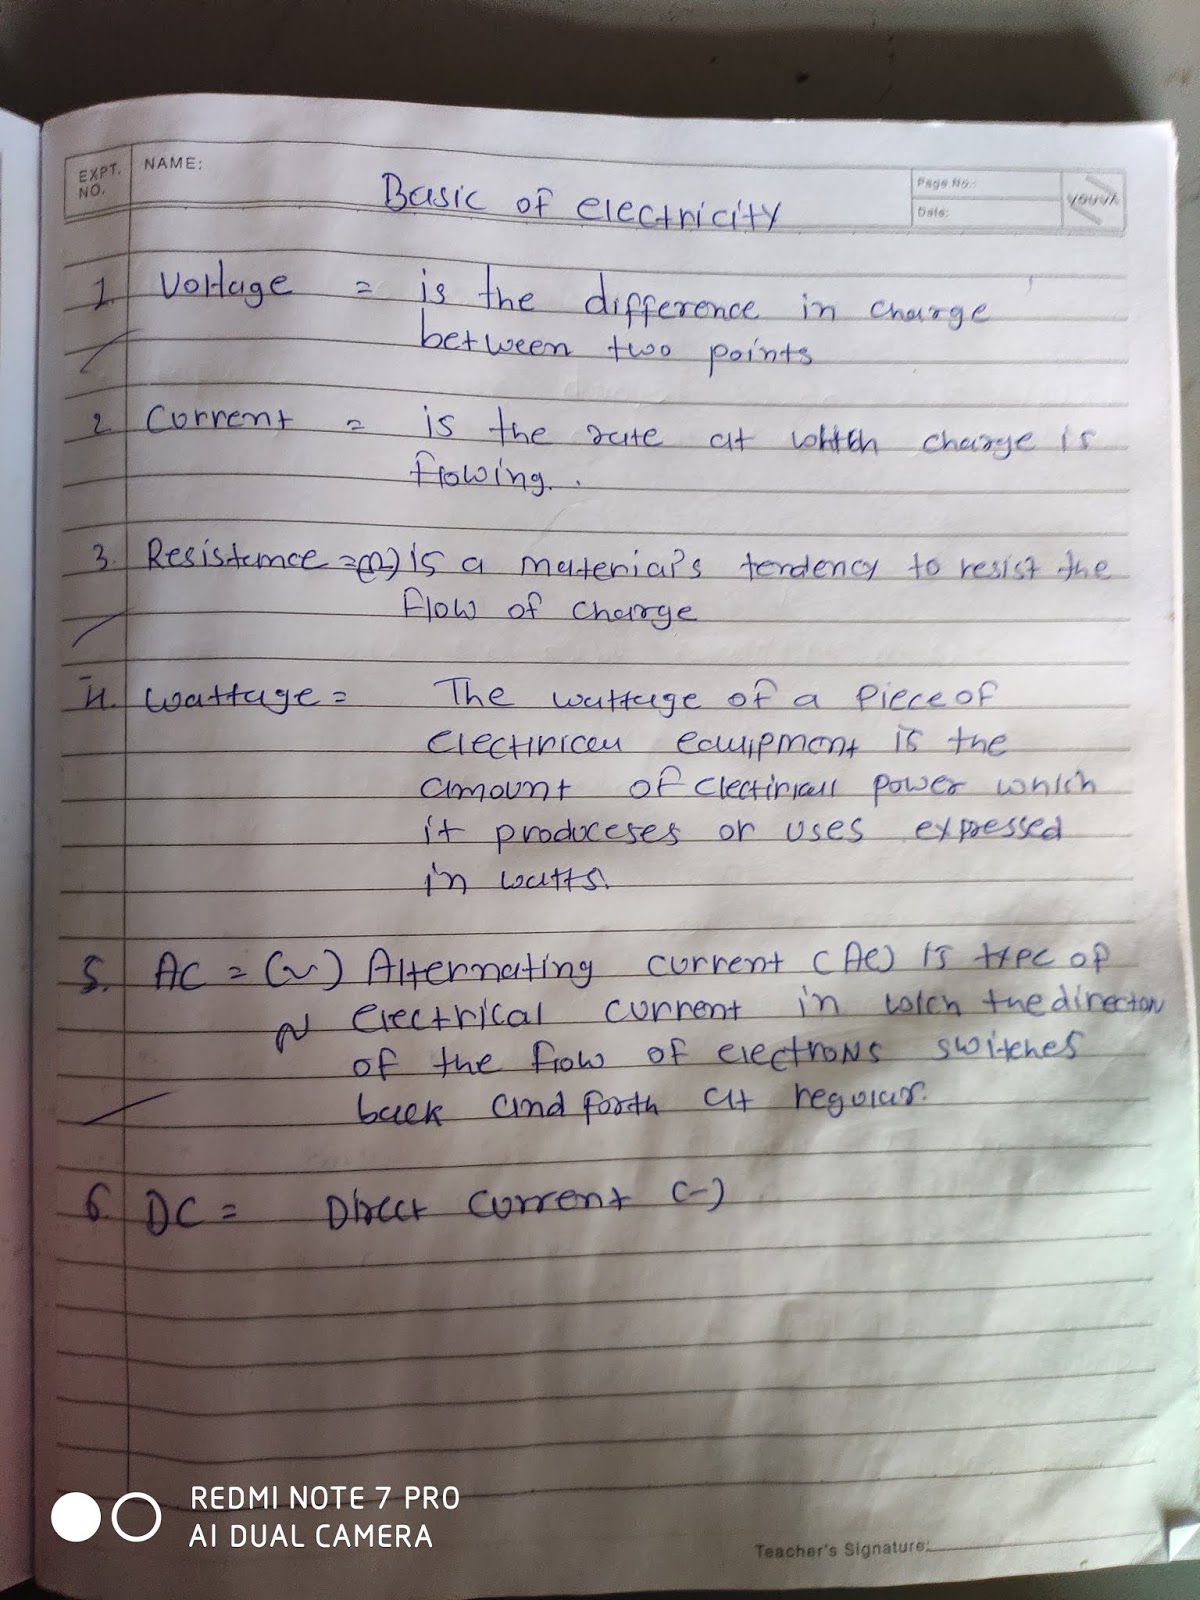 EXPT. NO.
NAME:
Page No.:
Date:
YOUVA
Basic of electricity
1. Voltage = is the difference in charge
between two points
2. Current = is the rate at which charge is
flowing.
3. Resistance = (Ω) is a material's tendency to resist the
flow of charge
4. Wattage = The wattage of a piece of
electrical equipment is the
amount of electrical power which
it produceses or uses expressed
in watts.
5. AC = (~) Alternating current (AC) is type of
~ electrical current in wich the direction
of the flow of electrons switches
back and forth at regular.
6. DC = Direct current (-)
REDMI NOTE 7 PRO
AI DUAL CAMERA
Teacher's Signature: